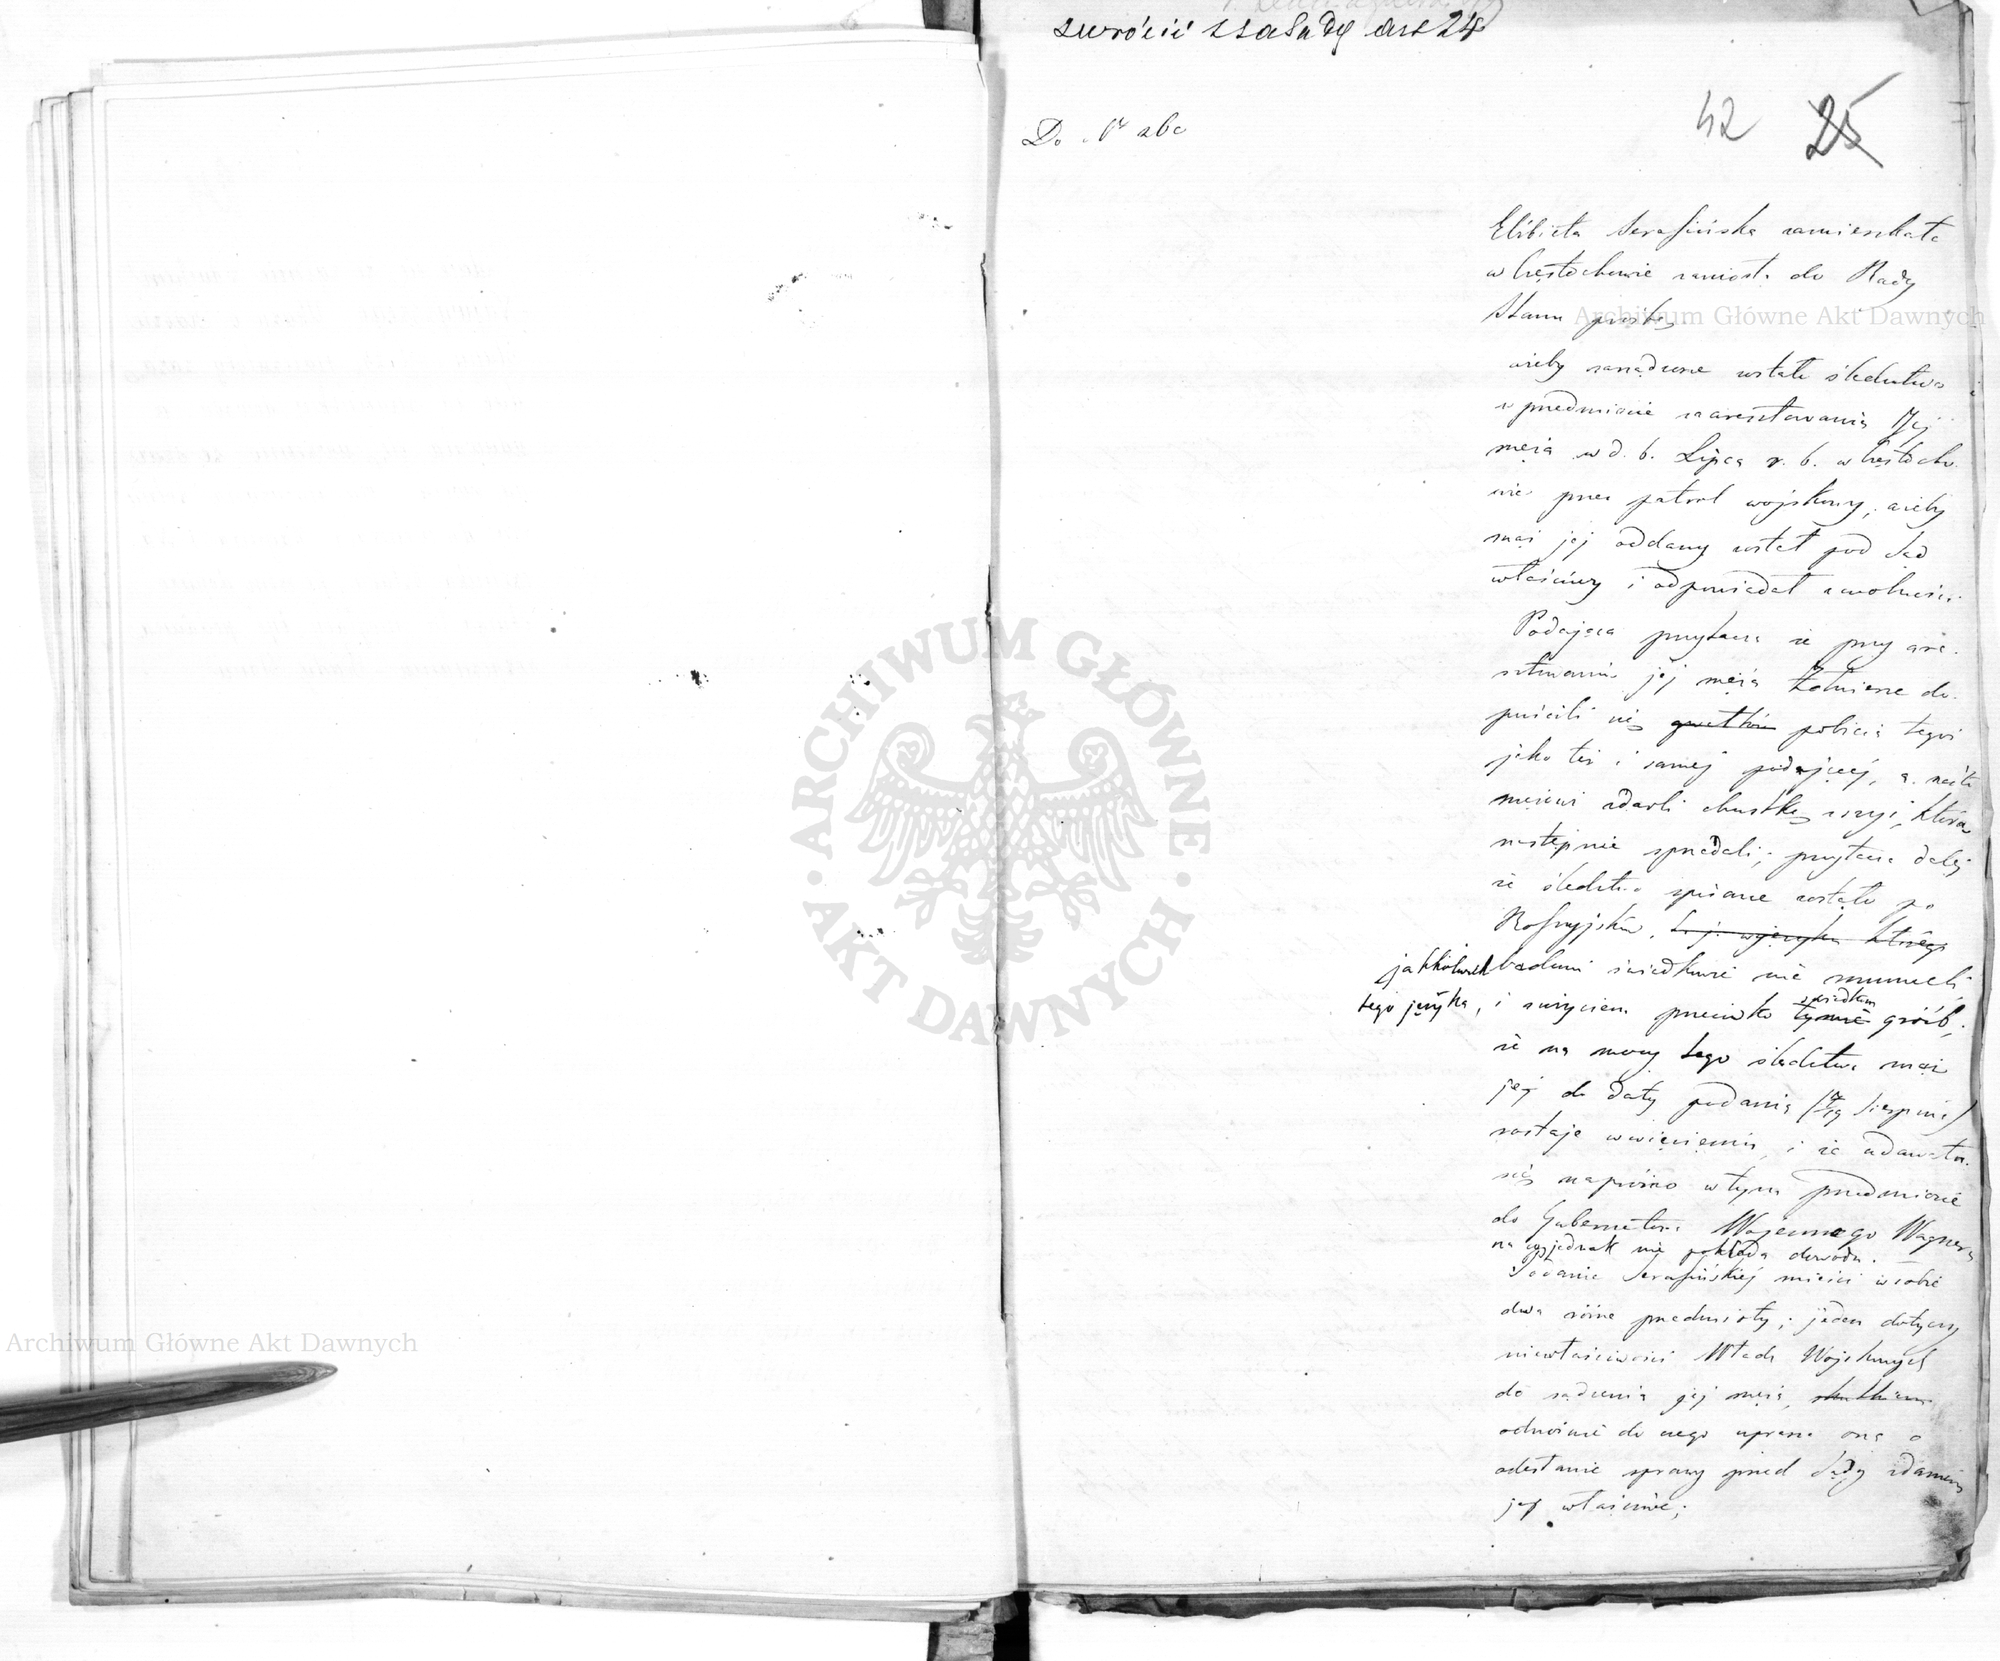 zwrócić z zasady art 24
Do Nr 260
42 25
Elżbieta Serafińska zamieszkała
w Częstochowie zaniosła do Rady
Stanu prośbę
ażeby zarządzone zostało śledztwo
w przedmiocie zaaresztowania Jej
męża w d. 6. Lipca r. b. w Częstocho-
wie przez patrol wojskowy, ażeby
mąż jej oddany został pod Sąd
właściwy i odpowiadał z wolności.
Podająca przytacza że przy are-
sztowaniu jej męża Żołnierze do-
puścili się gwałtów pobicia tegoż
jako też i samej podającej, a nadto
mężowi zdarli chustkę z szyi, którą
następnie sprzedali; przytacza dalej
że śledztwo spisane zostało po
Rossyjsku, którego
jakkolwiek badani świadkowie nie rozumieli
tego języka, i z użyciem przeciwko tymże świadkom gróźb,
że na mocy tego śledztwa mąż
jej do daty podania (17/29 Sierpnia)
zostaje w więzieniu, i że udawała
się na piśmie w tym przedmiocie
do Gubernatora Wojennego Wagnera
na co jednak nie pokłada dowodu.
Podanie Serafińskiej mieści w sobie
dwa różne przedmioty; jeden dotyczy
niewłaściwości Władz Wojskowych
do sądzenia jej męża,
odnośnie do czego uprasza ona o
odesłanie sprawy przed Sądy zdaniem
jej właściwe;
Archiwum Główne Akt Dawnych
Archiwum Główne Akt Dawnych
ARCHIWUM GŁÓWNE AKT DAWNYCH